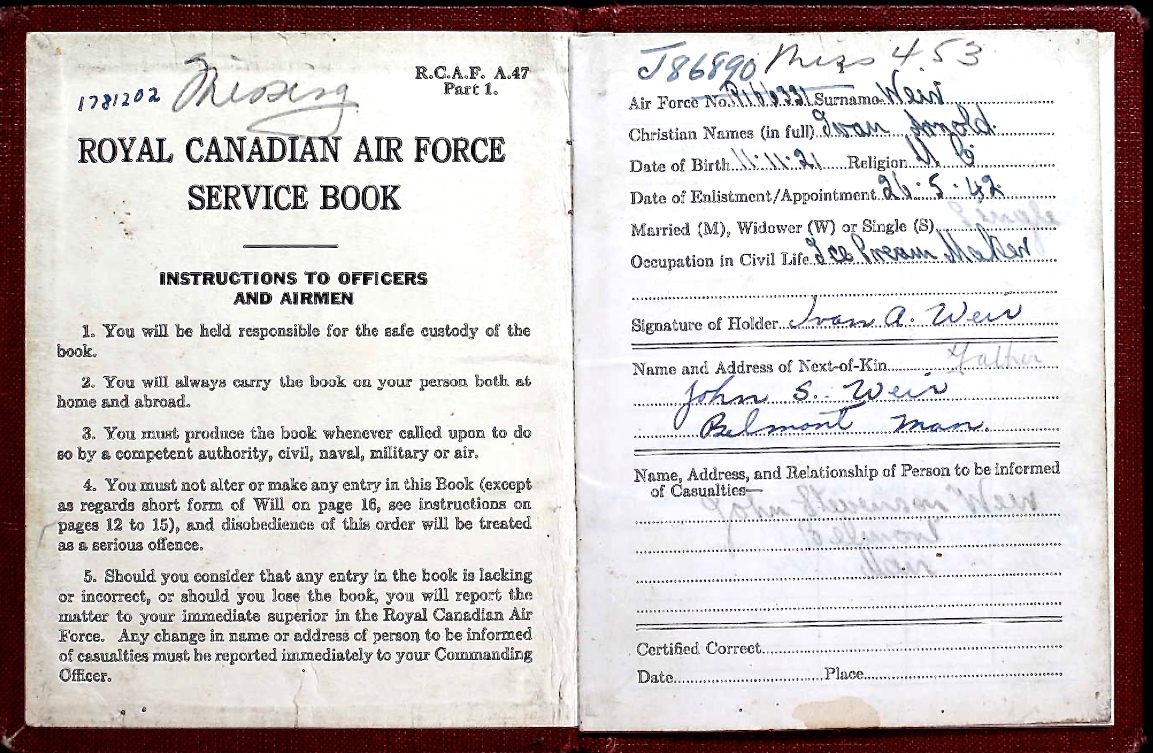 1781202 Missing
R.C.A.F. A.47
Part 1.
ROYAL CANADIAN AIR FORCE
SERVICE BOOK
INSTRUCTIONS TO OFFICERS
AND AIRMEN
1. You will be held responsible for the safe custody of the
book.
2. You will always carry the book on your person both at
home and abroad.
3. You must produce the book whenever called upon to do
so by a competent authority, civil, naval, military or air.
4. You must not alter or make any entry in this Book (except
as regards short form of Will on page 16, see instructions on
pages 12 to 15), and disobedience of this order will be treated
as a serious offence.
5. Should you consider that any entry in the book is lacking
or incorrect, or should you lose the book, you will report the
matter to your immediate superior in the Royal Canadian Air
Force. Any change in name or address of person to be informed
of casualties must be reported immediately to your Commanding
Officer.
J86890 453
Air Force No. R166331 Surname Weir
Christian Names (in full) Ivan Arnold
Date of Birth 11.11.21 Religion U C
Date of Enlistment/Appointment 26.5.42
Married (M), Widower (W) or Single (S) Single
Occupation in Civil Life Ice Cream Maker
Signature of Holder Ivan A. Weir
Name and Address of Next-of-Kin Father
John S. Weir
Belmont Man.
Name, Address, and Relationship of Person to be informed
of Casualties—
John Stevenson Weir
Belmont
Man
Certified Correct
Date Place